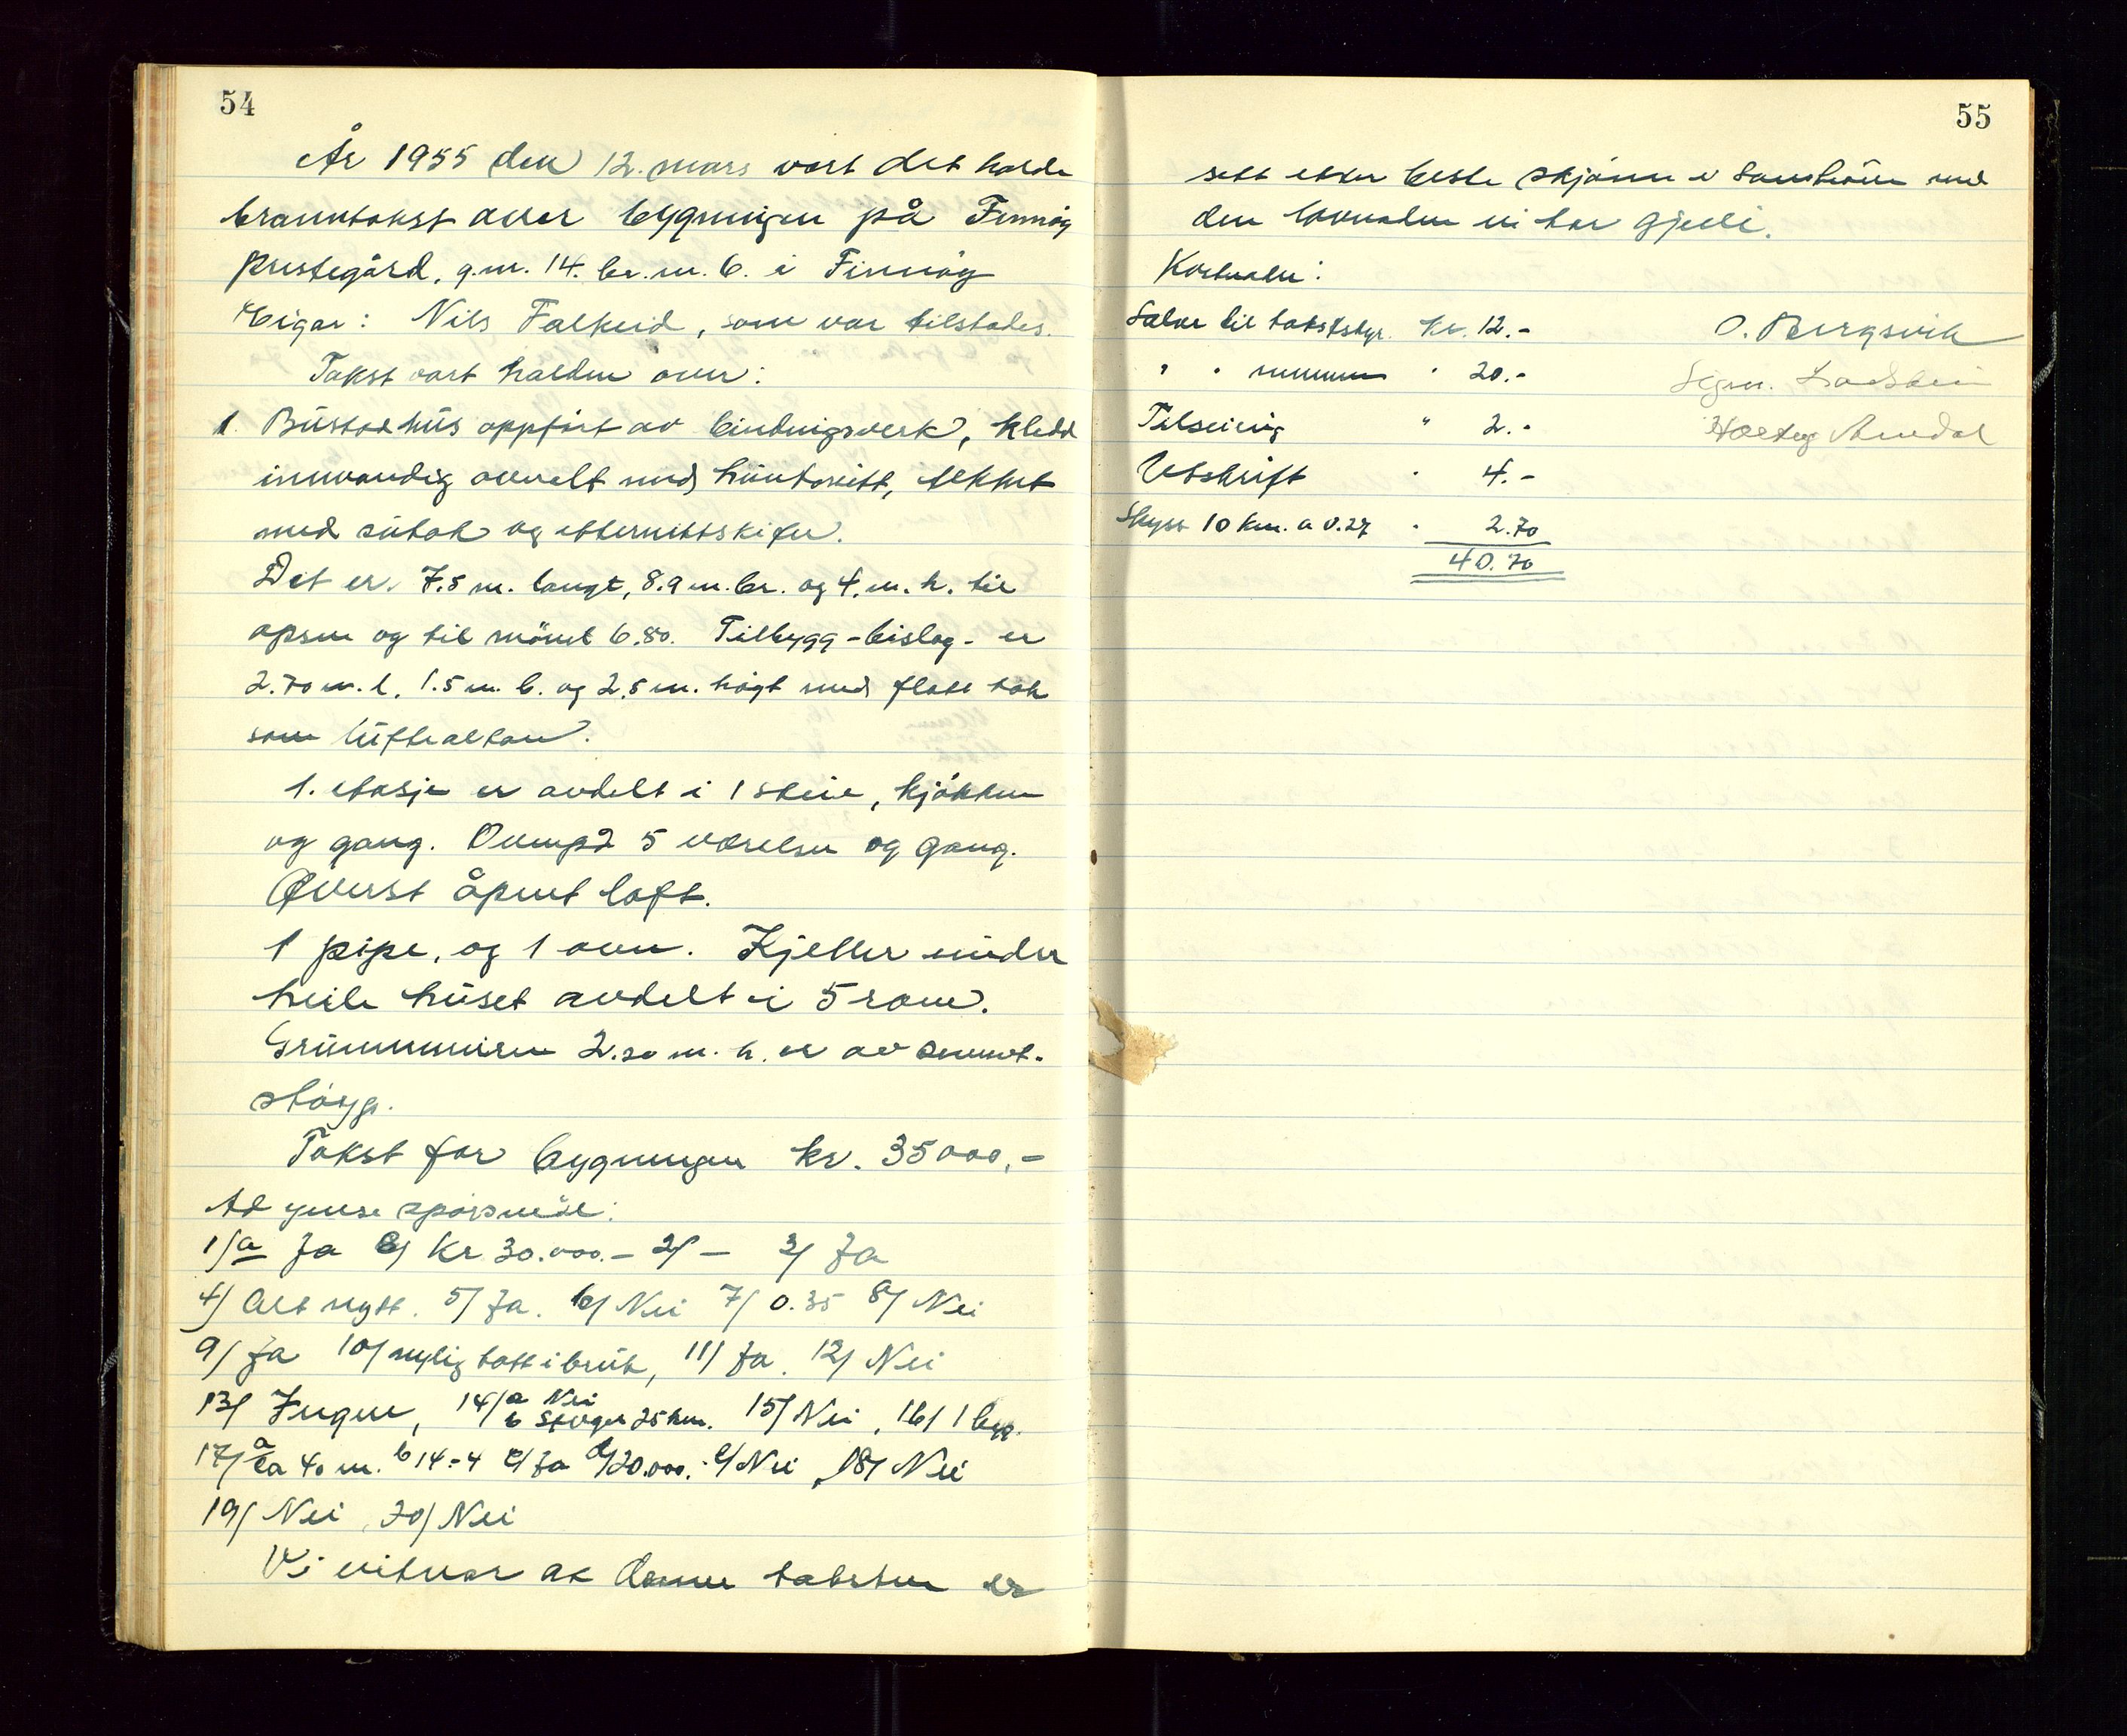 54
År 1955 den 12. mars vart det halde
branntakst over bygningen på Finnøy
prestegård, g.nr. 14. br.nr. 6. i Finnøy
Eigar: Nils Falkeid, som var tilstades.
Takst vart halden over:
1. Bustadhus oppført av bindingsverk, kledd
innvendig overalt med huntonitt, tekket
med sutak og etternittskifer.
Det er 7.5 m. langt, 8.9 m. br. og 4. m. h. til
opsen og til mønet 6.80. Tilbygg - bislag - er
2.70 m. l. 1.5 m. b. og 2.5 m. høgt med flatt tak
som luftealtan.
1. etasje er avdelt i 1 steie, kjøkken
og gang. Ovenpå 5 værelser og gang.
Øverst åpent loft.
1 pipe, og 1 ovn. Kjeller under
heile huset avdelt i 5 rom.
Grunnmuren 2.20 m. h. er av sement-
støyp.
Takst for bygningen kr. 35000,-
Ad ymse spørsmål:
1/a Ja b/ Kr 30.000.- 2/ - 3/ Ja
4/ Alt nytt. 5/ Ja. 6/ Nei 7/ 0.35 8/ Nei
9/ Ja 10/ nylig tatt i bruk, 11/ Ja. 12/ Nei
13/ Ingen, 14/ a Nei
b Stvgr 25 km. 15/ Nei, 16/ 1 byg.
17/ a ca 40 m. b 14-4 c/ Ja d/ 20.000.- e/ Nei, 18/ Nei
19/ Nei, 20/ Nei
Vi vitnar at denne taksten er
55
sett etter beste skjønn i samhøve med
den lovnaden vi har gjeve.
Kostnader:
Salær til takststyr. kr. 12.-
" " mennene " 20.-
Tilseiing " 2.-
Utskrift " 4.-
Skyss 10 km. a 0.27 " 2.70
40.70
O. Bergsvik